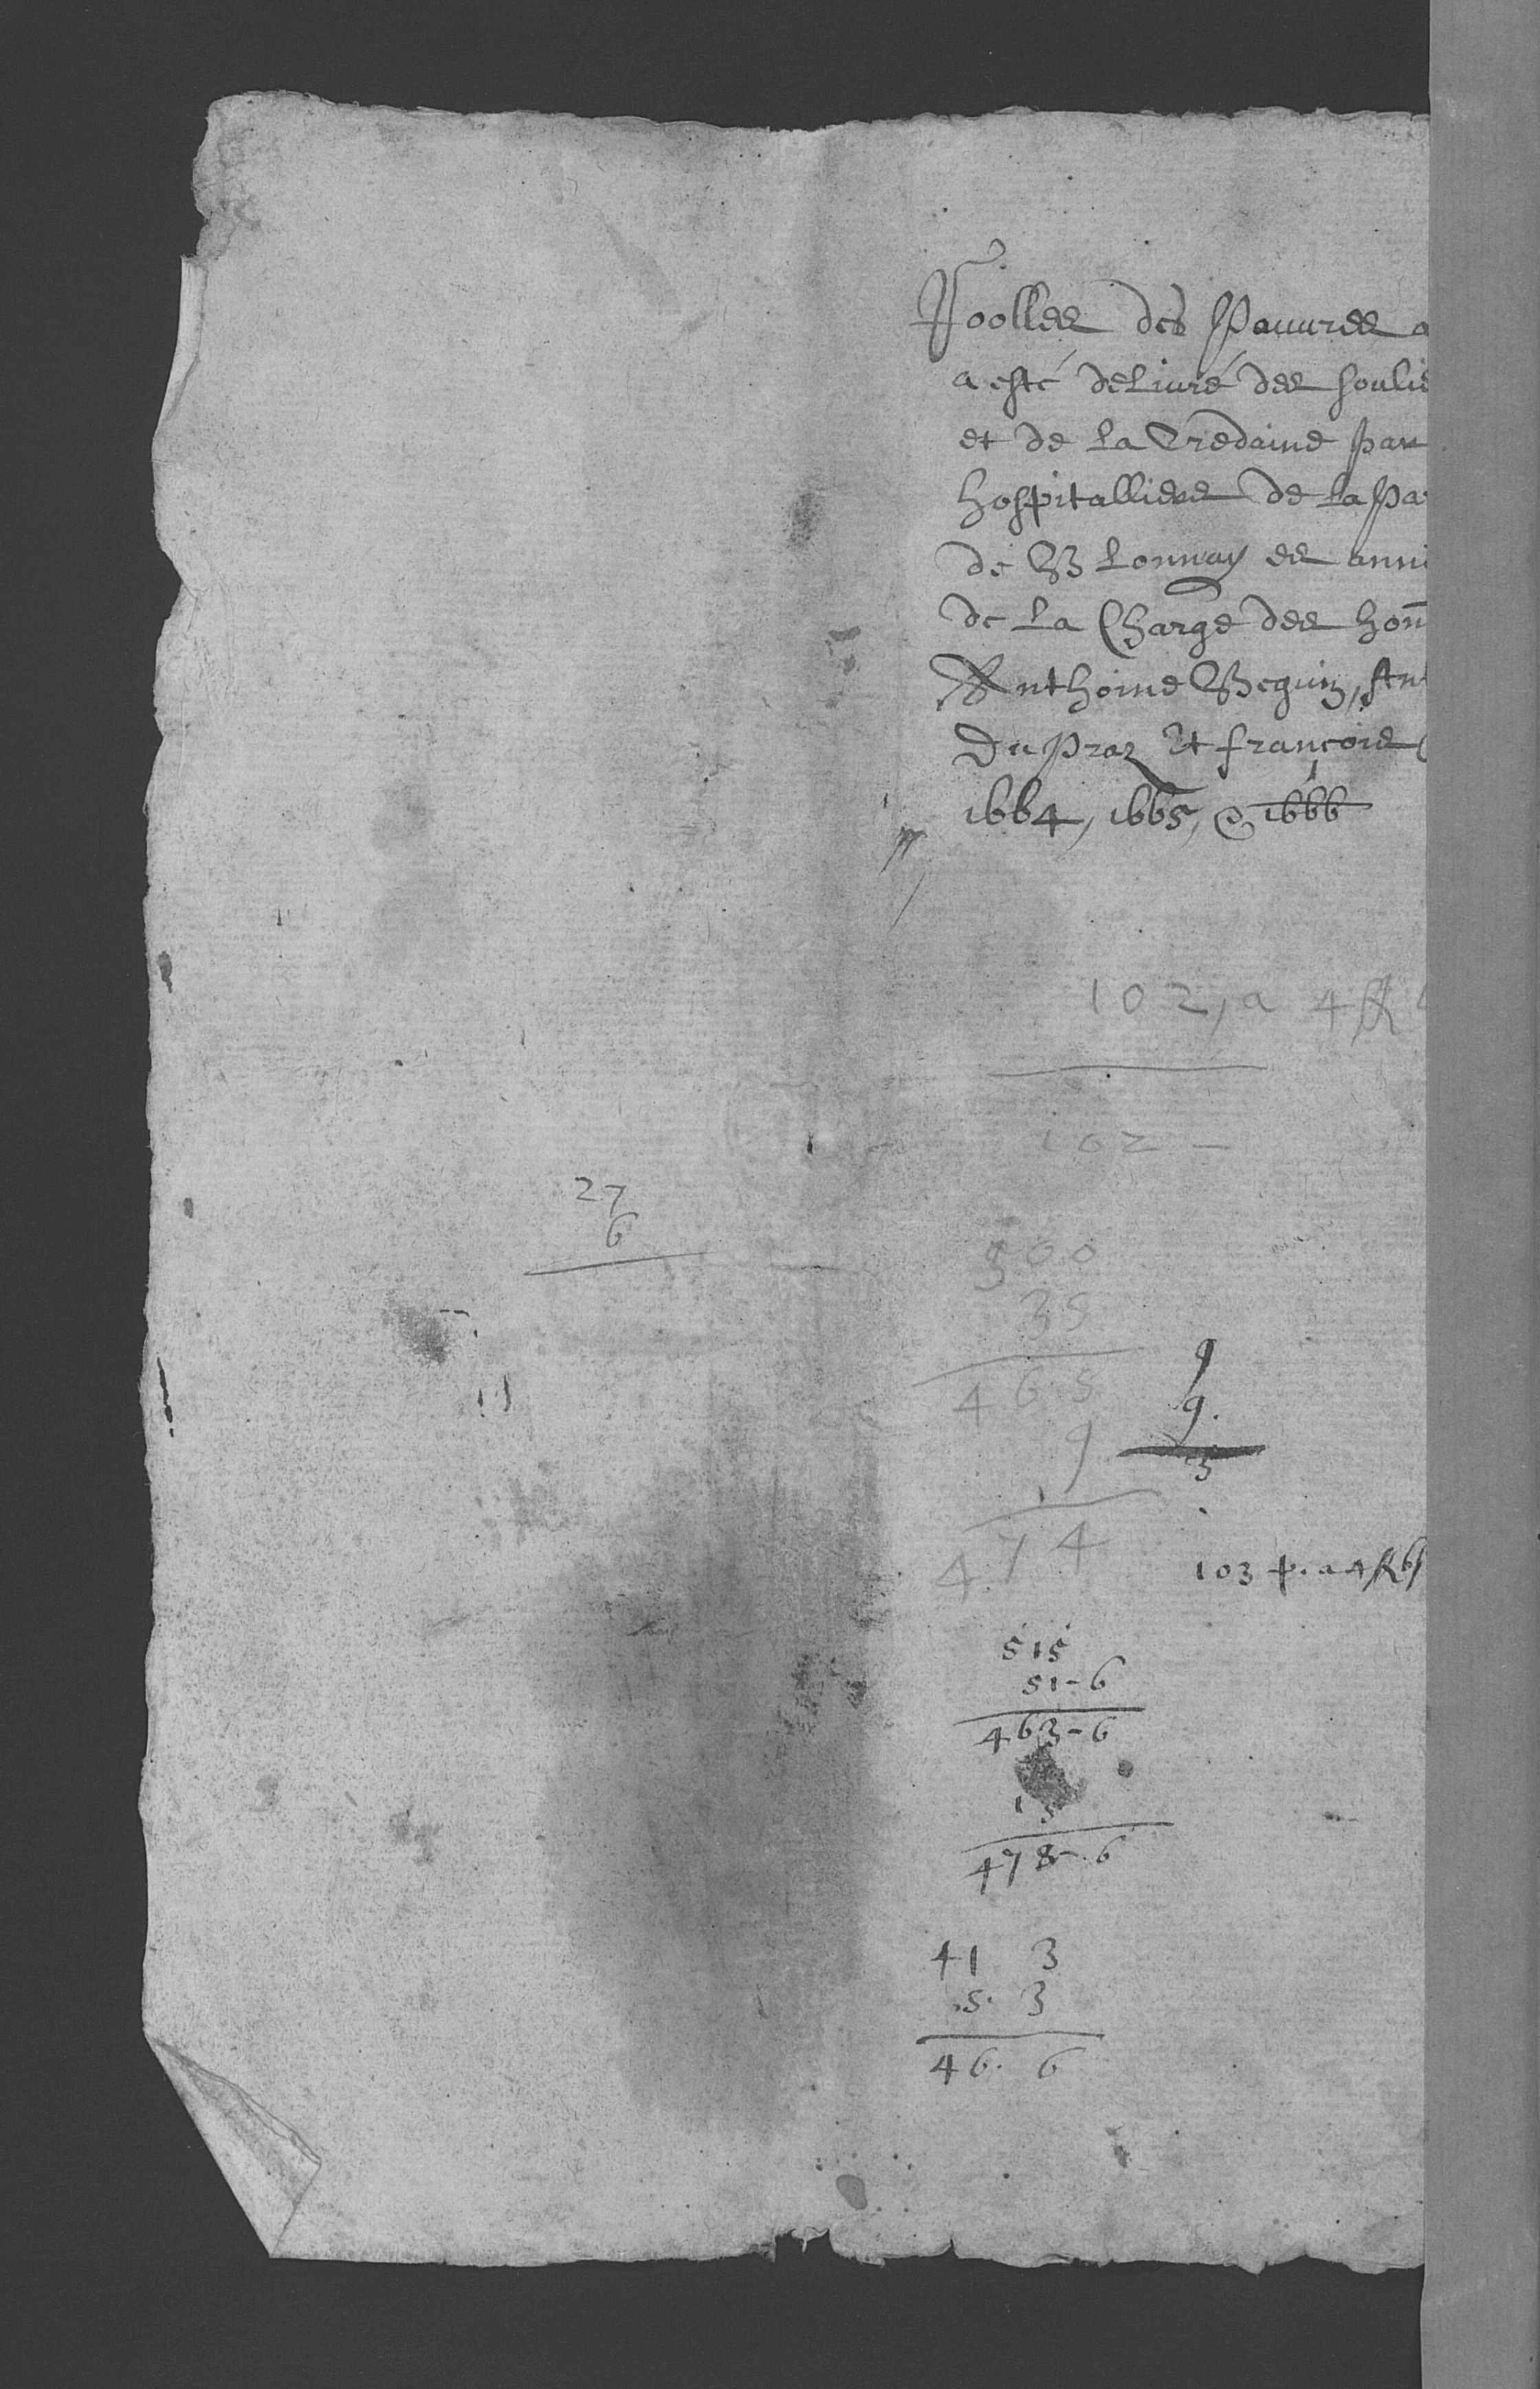 Roolles des Pauures a
a esté deliuré des soulie
et de la Tredaine par
hospitalliers de la Pa
de Blonnay es anné
de la Charge des hon̄
Anthoine Beguin, Ant
Du Praz Et françois
1664, 1665, & 1666
102, a 4
102 -
27
6
500
35
465
9
474
9
9.
3
103 p. a 4
515
51-6
463-6
15
478-6
41 3
5. 3
46. 6